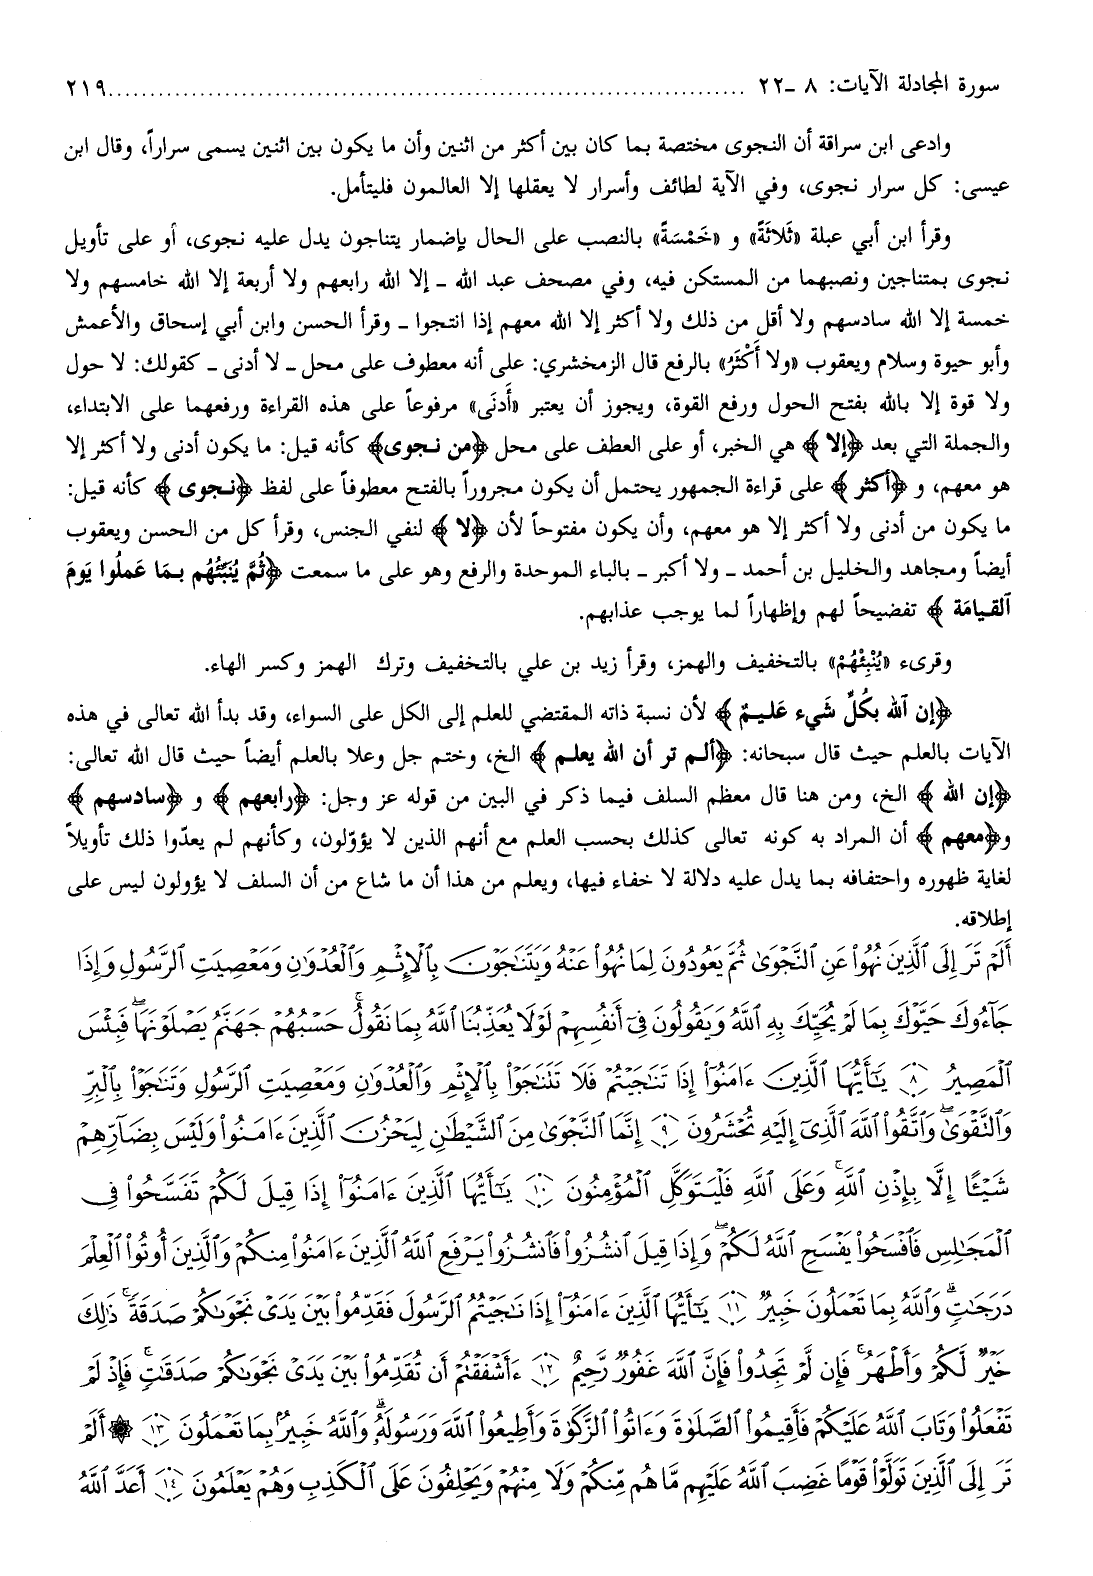 سورة المجادلة الآيات: ٨ ـ ٢٢ ........................................ ٢١٩
وادعى ابن سراقة أن النجوى مختصة بما كان بين أكثر من اثنين وأن ما يكون بين اثنين يسمى سراراً، وقال ابن
عيسى: كل سرار نجوى، وفي الآية لطائف وأسرار لا يعقلها إلا العالمون فليتأمل.
وقرأ ابن أبي عبلة «ثَلاثَةً» و «خَمْسَةً» بالنصب على الحال بإضمار يتناجون يدل عليه نجوى، أو على تأويل
نجوى بمتناجين ونصبهما من المستكن فيه، وفي مصحف عبد الله ـ إلا الله رابعهم ولا أربعة إلا الله خامسهم ولا
خمسة إلا الله سادسهم ولا أقل من ذلك ولا أكثر إلا الله معهم إذا انتجوا ـ وقرأ الحسن وابن أبي إسحاق والأعمش
وأبو حيوة وسلام ويعقوب «ولا أَكْثَرُ» بالرفع قال الزمخشري: على أنه معطوف على محل ـ لا أدنى ـ كقولك: لا حول
ولا قوة إلا بالله بفتح الحول ورفع القوة، ويجوز أن يعتبر «أَدنَى» مرفوعاً على هذه القراءة ورفعهما على الابتداء،
والجملة التي بعد ﴿إلا﴾ هي الخبر، أو على العطف على محل ﴿من نجوى﴾ كأنه قيل: ما يكون أدنى ولا أكثر إلا
هو معهم، و ﴿أكثر﴾ على قراءة الجمهور يحتمل أن يكون مجروراً بالفتح معطوفاً على لفظ ﴿نجوى﴾ كأنه قيل:
ما يكون من أدنى ولا أكثر إلا هو معهم، وأن يكون مفتوحاً لأن ﴿لا﴾ لنفي الجنس، وقرأ كل من الحسن ويعقوب
أيضاً ومجاهد والخليل بن أحمد ـ ولا أكبر ـ بالباء الموحدة والرفع وهو على ما سمعت ﴿ثُمَّ يُنَبِّئُهُم بمَا عَملُوا يَومَ
القيامَة﴾ تفضيحاً لهم وإظهاراً لما يوجب عذابهم.
وقرىء «يُنْبِئْهُمْ» بالتخفيف والهمز، وقرأ زيد بن علي بالتخفيف وترك الهمز وكسر الهاء.
﴿إن ٱلله بكُلِّ شَيء عَليمٌ﴾ لأن نسبة ذاته المقتضي للعلم إلى الكل على السواء، وقد بدأ الله تعالى في هذه
الآيات بالعلم حيث قال سبحانه: ﴿ألم تر أن الله يعلم﴾ الخ، وختم جل وعلا بالعلم أيضاً حيث قال الله تعالى:
﴿إن الله﴾ الخ، ومن هنا قال معظم السلف فيما ذكر في البين من قوله عز وجل: ﴿رابعهم﴾ و ﴿سادسهم﴾
و﴿معهم﴾ أن المراد به كونه تعالى كذلك بحسب العلم مع أنهم الذين لا يؤوّلون، وكأنهم لم يعدّوا ذلك تأويلاً
لغاية ظهوره واحتفافه بما يدل عليه دلالة لا خفاء فيها، ويعلم من هذا أن ما شاع من أن السلف لا يؤولون ليس على
إطلاقه.
أَلَمْ تَرَ إِلَى ٱلَّذِينَ نُهُوا۟ عَنِ ٱلنَّجْوَىٰ ثُمَّ يَعُودُونَ لِمَا نُهُوا۟ عَنْهُ وَيَتَنَٰجَوْنَ بِٱلْإِثْمِ وَٱلْعُدْوَٰنِ وَمَعْصِيَتِ ٱلرَّسُولِ وَإِذَا
جَآءُوكَ حَيَّوْكَ بِمَا لَمْ يُحَيِّكَ بِهِ ٱللَّهُ وَيَقُولُونَ فِىٓ أَنفُسِهِمْ لَوْلَا يُعَذِّبُنَا ٱللَّهُ بِمَا نَقُولُ ۚ حَسْبُهُمْ جَهَنَّمُ يَصْلَوْنَهَا ۖ فَبِئْسَ
ٱلْمَصِيرُ ٨ يَٰٓأَيُّهَا ٱلَّذِينَ ءَامَنُوٓا۟ إِذَا تَنَٰجَيْتُمْ فَلَا تَتَنَٰجَوْا۟ بِٱلْإِثْمِ وَٱلْعُدْوَٰنِ وَمَعْصِيَتِ ٱلرَّسُولِ وَتَنَٰجَوْا۟ بِٱلْبِرِّ
وَٱلتَّقْوَىٰ ۖ وَٱتَّقُوا۟ ٱللَّهَ ٱلَّذِىٓ إِلَيْهِ تُحْشَرُونَ ٩ إِنَّمَا ٱلنَّجْوَىٰ مِنَ ٱلشَّيْطَٰنِ لِيَحْزُنَ ٱلَّذِينَ ءَامَنُوا۟ وَلَيْسَ بِضَآرِّهِمْ
شَيْـًٔا إِلَّا بِإِذْنِ ٱللَّهِ ۚ وَعَلَى ٱللَّهِ فَلْيَتَوَكَّلِ ٱلْمُؤْمِنُونَ ١٠ يَٰٓأَيُّهَا ٱلَّذِينَ ءَامَنُوٓا۟ إِذَا قِيلَ لَكُمْ تَفَسَّحُوا۟ فِى
ٱلْمَجَٰلِسِ فَٱفْسَحُوا۟ يَفْسَحِ ٱللَّهُ لَكُمْ ۖ وَإِذَا قِيلَ ٱنشُزُوا۟ فَٱنشُزُوا۟ يَرْفَعِ ٱللَّهُ ٱلَّذِينَ ءَامَنُوا۟ مِنكُمْ وَٱلَّذِينَ أُوتُوا۟ ٱلْعِلْمَ
دَرَجَٰتٍ ۚ وَٱللَّهُ بِمَا تَعْمَلُونَ خَبِيرٌ ١١ يَٰٓأَيُّهَا ٱلَّذِينَ ءَامَنُوٓا۟ إِذَا نَٰجَيْتُمُ ٱلرَّسُولَ فَقَدِّمُوا۟ بَيْنَ يَدَىْ نَجْوَىٰكُمْ صَدَقَةً ۚ ذَٰلِكَ
خَيْرٌ لَّكُمْ وَأَطْهَرُ ۚ فَإِن لَّمْ تَجِدُوا۟ فَإِنَّ ٱللَّهَ غَفُورٌ رَّحِيمٌ ١٢ ءَأَشْفَقْتُمْ أَن تُقَدِّمُوا۟ بَيْنَ يَدَىْ نَجْوَىٰكُمْ صَدَقَٰتٍ ۚ فَإِذْ لَمْ
تَفْعَلُوا۟ وَتَابَ ٱللَّهُ عَلَيْكُمْ فَأَقِيمُوا۟ ٱلصَّلَوٰةَ وَءَاتُوا۟ ٱلزَّكَوٰةَ وَأَطِيعُوا۟ ٱللَّهَ وَرَسُولَهُۥ ۚ وَٱللَّهُ خَبِيرٌۢ بِمَا تَعْمَلُونَ ١٣ ۞ أَلَمْ
تَرَ إِلَى ٱلَّذِينَ تَوَلَّوْا۟ قَوْمًا غَضِبَ ٱللَّهُ عَلَيْهِم مَّا هُم مِّنكُمْ وَلَا مِنْهُمْ وَيَحْلِفُونَ عَلَى ٱلْكَذِبِ وَهُمْ يَعْلَمُونَ ١٤ أَعَدَّ ٱللَّهُ